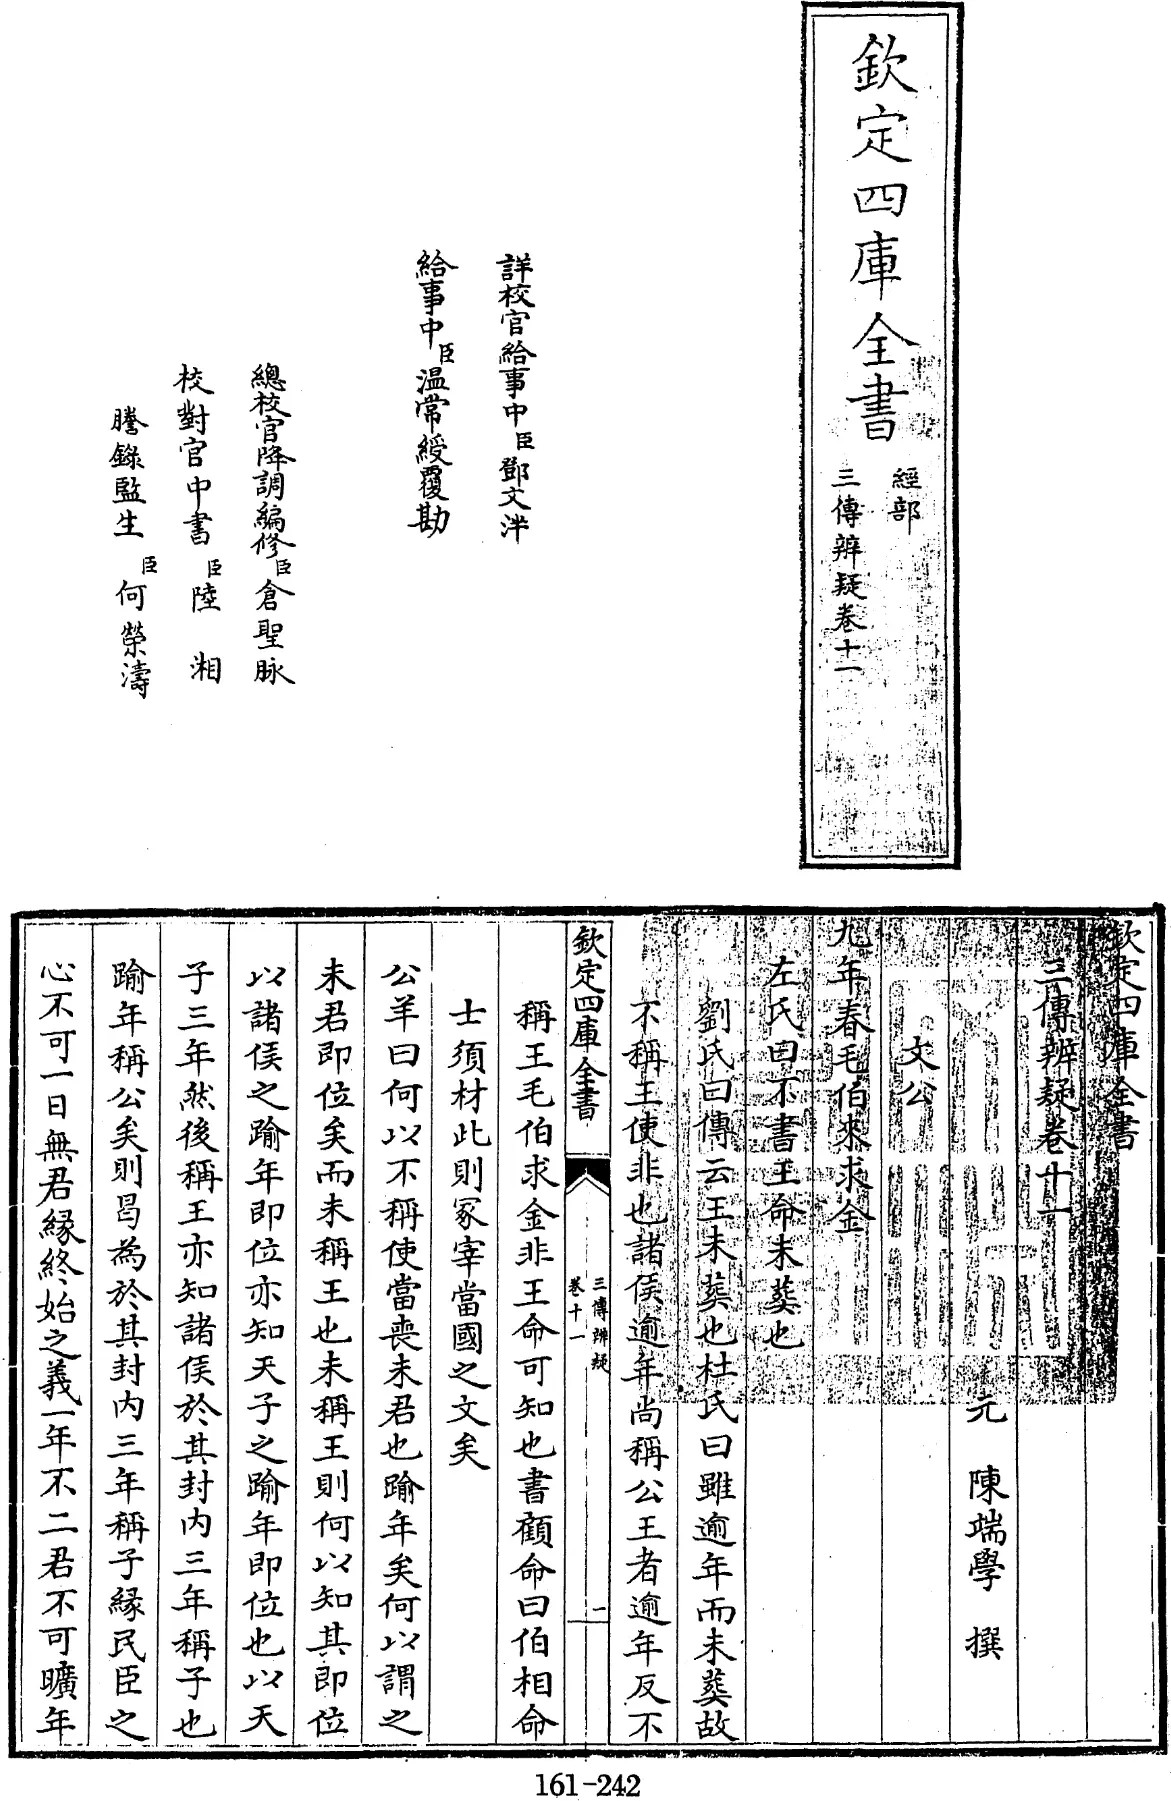 欽定四庫全書
經部
三傳辨疑卷十一
詳校官給事中臣鄧文泮
給事中臣温常綬覆勘
總校官降調編修臣倉聖脉
校對官中書臣陸湘
謄錄監生臣何榮濤
欽定四庫全書
三傳辨疑卷十一
元 陳端學 撰
文公
九年春毛伯來求金
左氏曰不書王命未葬也
劉氏曰傳云王未葬也杜氏曰雖逾年而未葬故
不稱王使非也諸侯逾年尚稱公王者逾年反不
欽定四庫全書
三傳辨疑
卷十一
一
稱王毛伯求金非王命可知也書顧命曰伯相命
士須材此則冢宰當國之文矣
公羊曰何以不稱使當喪未君也踰年矣何以謂之
未君即位矣而未稱王也未稱王則何以知其即位
以諸侯之踰年即位亦知天子之踰年即位也以天
子三年然後稱王亦知諸侯於其封内三年稱子也
踰年稱公矣則曷為於其封内三年稱子緣民臣之
心不可一日無君緣終始之義一年不二君不可曠年
161-242